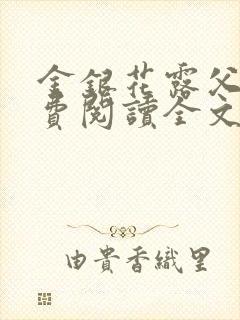 金銀花露父
費閱讀全文
由貴香織里